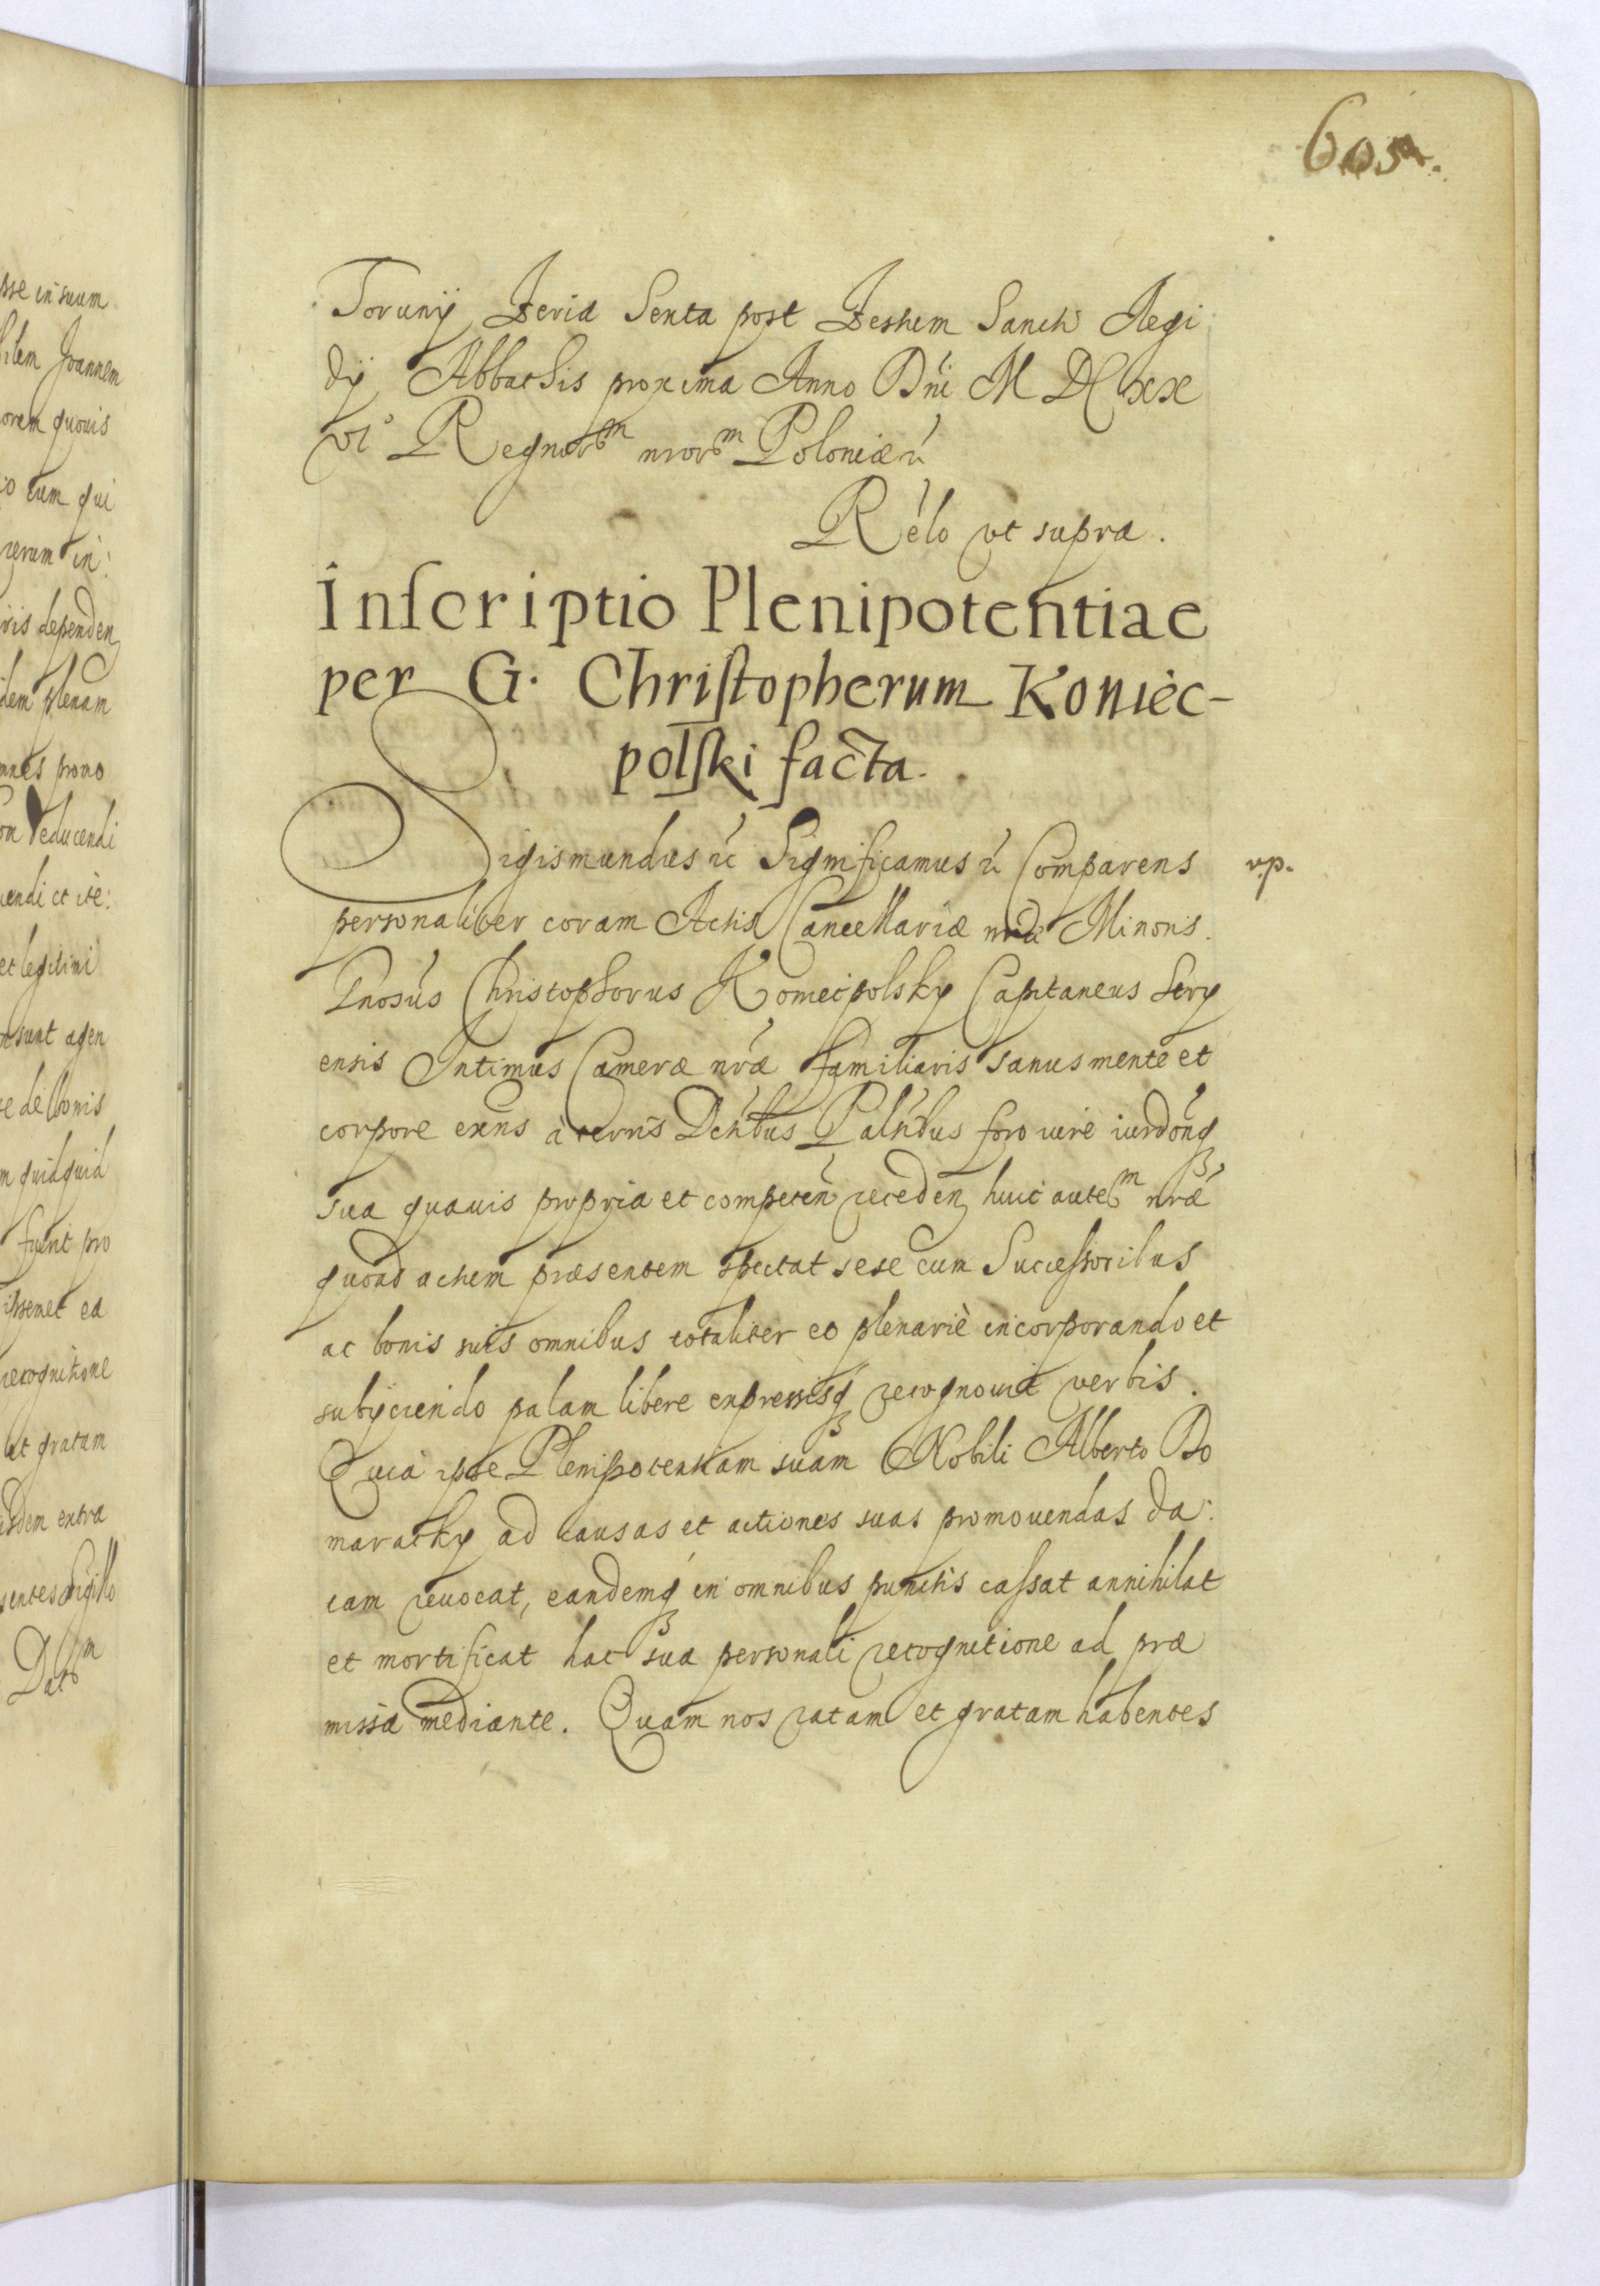 605
Torunÿ Feria Sexta post Festum Sancti Aegi
dÿ Abbatis proxima Anno Dni M DC XX
VI° Regnorum nrorum Poloniæ etc
Rélo vt supra.
Inscriptio Plenipotentiae
per G. Christopherum Koniec-
polski facta.
Sigismundus etc Significamus etc Comparens v.p.
personaliter coram Actis Cancellariæ nræ Minoris.
Gnosus Christophorus Koniecpolsky Capitaneus Stry
ensis Intimus Cameræ nræ familiaris sanus mente et
corpore exns à terris Dctibus Palntbus foro iure iurdonq
sua quauis propria et competen receden huic autem nræ
quoad actum præsentem spectat sese cum Successoribus
ac bonis suis omnibus totaliter et plenariè incorporando et
subÿciendo palam libere expressisq recognouit verbis.
Quia ipse Plenipotentiam suam Nobili Alberto Do
maracky ad causas et actiones suas promouendas da:
tam reuocat, eandemq in omnibus punctis cassat annihilat
et mortificat hac sua personali recognitione ad præ
missa mediante. Quam nos ratam et gratam habentes
sse in suum
Joannem
quouis
cum qui
rerum in:
dependen
plenam
educendi
et legitimi
sunt agen
de bonis
quidquid
fuerit pro
ea
recognitione
et gratam
extra
Sigillo
Datum